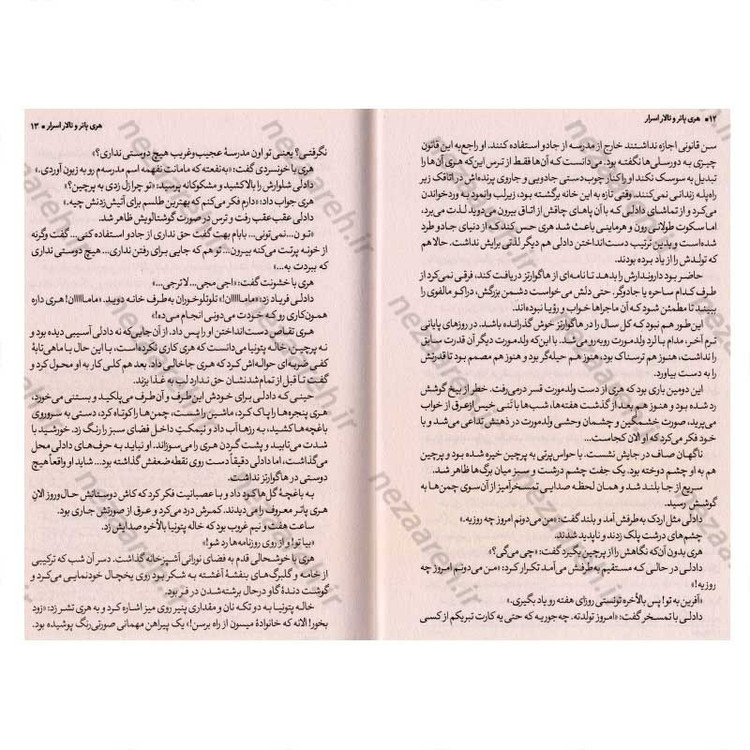 ۱۲ • هری پاتر و تالار اسرار
سن قانونی اجازه نداشتند خارج از مدرسه از جادو استفاده کنند. او راجع‌به این قانون
چیزی به دورسلی‌ها نگفته بود. می‌دانست که آن‌ها فقط از ترس این‌که هری آن‌ها را
تبدیل به سوسک نکند او را کنار چوب‌دستی جادویی و جاروی پرنده‌اش در اتاقک زیر
راه‌پله زندانی نمی‌کنند. وقتی تازه به این خانه برگشته بود، زیرلب وانمود به وردخواندن
می‌کرد و از تماشای دادلی که با آن پاهای چاقش از اتاق بیرون می‌دوید لذت می‌برد،
اما سکوت طولانی رون و هرماینی باعث شد هری حس کند که از دنیای جادو طرد
شده‌است و بدین ترتیب دست‌انداختن دادلی هم دیگر لذتی برایش نداشت. حالا هم
که تولدش را از یاد برده بودند.
حاضر بود داروندارش را بدهد تا نامه‌ای از هاگوارتز دریافت کند، فرقی نمی‌کرد از
طرف کدام ساحره یا جادوگر. حتی دلش می‌خواست دشمن بزرگش، دراکو مالفوی را
ببیند تا مطمئن شود که آن ماجراها خواب و رؤیا نبوده‌اند.
این طور هم نبود که کل سال را در هاگوارتز خوش گذرانده باشد. در روزهای پایانی
ترم آخر، مدام با لرد ولدمورت روبه‌رو می‌شد. با این‌که ولدمورت دیگر آن قدرت سابق
را نداشت، هنوز هم ترسناک بود، هنوز هم حیله‌گر بود و هنوز هم مصمم بود تا قدرتش
را به دست بیاورد.
این دومین باری بود که هری از دست ولدمورت قسر درمی‌رفت. خطر از بیخ گوشش
رد شده بود و هنوز هم بعد از گذشت هفته‌ها، شب‌ها با تنی خیس از عرق از خواب
می‌پرید، صورت خشمگین و چشمان وحشی ولدمورت در ذهنش تداعی می‌شد و با
خود فکر می‌کرد که او الان کجاست...
ناگهان صاف در جایش نشست. با حواس‌پرتی به پرچین خیره شده بود و پرچین
هم به او چشم دوخته بود. یک جفت چشم درشت و سبز میان برگ‌ها ظاهر شد.
سریع از جا بلند شد و همان لحظه صدایی تمسخرآمیز از آن‌سوی چمن‌ها به
گوشش رسید.
دادلی مثل اردک به‌طرفش آمد و بلند گفت: «من می‌دونم امروز چه روزیه.»
چشم‌های درشت پلک زدند و ناپدید شدند.
هری بدون آن‌که نگاهش را از پرچین بگیرد گفت: «چی می‌گی؟»
دادلی در حالی که مستقیم به‌طرفش می‌آمد تکرار کرد: «من می‌دونم امروز چه
روزیه!»
«آفرین به تو! پس بالأخره تونستی روزای هفته رو یاد بگیری.»
دادلی با تمسخر گفت: «امروز تولدته. چه‌جوریه که حتی یه کارت تبریکم از کسی
هری پاتر و تالار اسرار • ۱۳
نگرفتی؟ یعنی تو اون مدرسهٔ عجیب‌وغریب هیچ دوستی نداری؟»
هری با خونسردی گفت: «به‌نفعته که مامانت نفهمه اسم مدرسه‌م رو به زبون آوردی.»
دادلی شلوارش را بالا کشید و مشکوکانه پرسید: «تو چرا زل زدی به پرچین؟»
هری جواب داد: «دارم فکر می‌کنم که بهترین طلسم برای آتیش‌زدنش چیه.»
دادلی عقب‌عقب رفت و ترس در صورت گوشتالویش ظاهر شد.
«تو ن... نمی‌تونی... بابام بهت گفت حق نداری از جادو استفاده کنی... گفت وگرنه
از خونه پرتت می‌کنه بیرون... تو هم که جایی برای رفتن نداری... هیچ دوستی نداری
که ببردت به...»
هری با خشونت گفت: «اجی مجی... لا ترجی...»
دادلی فریاد زد: «ماماااااان!» تلوتلوخوران به‌طرف خانه دوید. «ماماااااان! هری داره
همون‌کاری رو که خودت می‌دونی انجام می‌ده!»
هری تقاص دست‌انداختن او را پس داد. از آن‌جایی که نه دادلی آسیبی دیده بود و
نه پرچین، خاله پتونیا می‌دانست که هری کاری نکرده‌است، با این حال با ماهی‌تابهٔ
کفی ضربه‌ای حواله‌اش کرد که هری جاخالی داد. بعد هم کلی کار به او محول کرد و
گفت تا قبل از تمام‌شدنشان حق ندارد لب به غذا بزند.
حینی که دادلی برای خودش این‌طرف و آن‌طرف می‌پلکید و بستنی می‌خورد،
هری پنجره‌ها را پاک کرد، ماشین را شست، چمن‌ها را کوتاه کرد، دستی به سروروی
باغچه‌ها کشید، به رزها آب داد و نیمکت داخل فضای سبز را رنگ زد. خورشید با
شدت می‌تابید و پشت گردن هری را می‌سوزاند. او نباید به حرف‌های دادلی محل
می‌گذاشت، اما دادلی دقیقاً دست روی نقطه‌ضعفش گذاشته بود... شاید او واقعاً هیچ
دوستی در هاگوارتز نداشت.
به باغچهٔ گل‌ها کود داد و با عصبانیت فکر کرد که کاش دوستانش حال‌وروز الانِ
هری پاتر معروف را می‌دیدند. کمرش درد می‌کرد و عرق از صورتش جاری بود.
ساعت هفت و نیم غروب بود که خاله پتونیا بالأخره صدایش زد.
«بیا تو! و از روی روزنامه‌ها رد شو!»
هری با خوشحالی قدم به فضای نورانی آشپزخانه گذاشت. دسر آن شب که ترکیبی
از خامه و گلبرگ‌های بنفشهٔ آغشته به شکر بود روی یخچال خودنمایی می‌کرد و
گوشت دندهٔ گاو درحال برشته‌شدن در فر بود.
خاله پتونیا به دو تکه نان و مقداری پنیر روی میز اشاره کرد و به هری تشر زد: «زود
بخور! الانه که خانوادهٔ میسون از راه برسن!» یک پیراهن مهمانی صورتی‌رنگ پوشیده بود.
nezaareh.ir